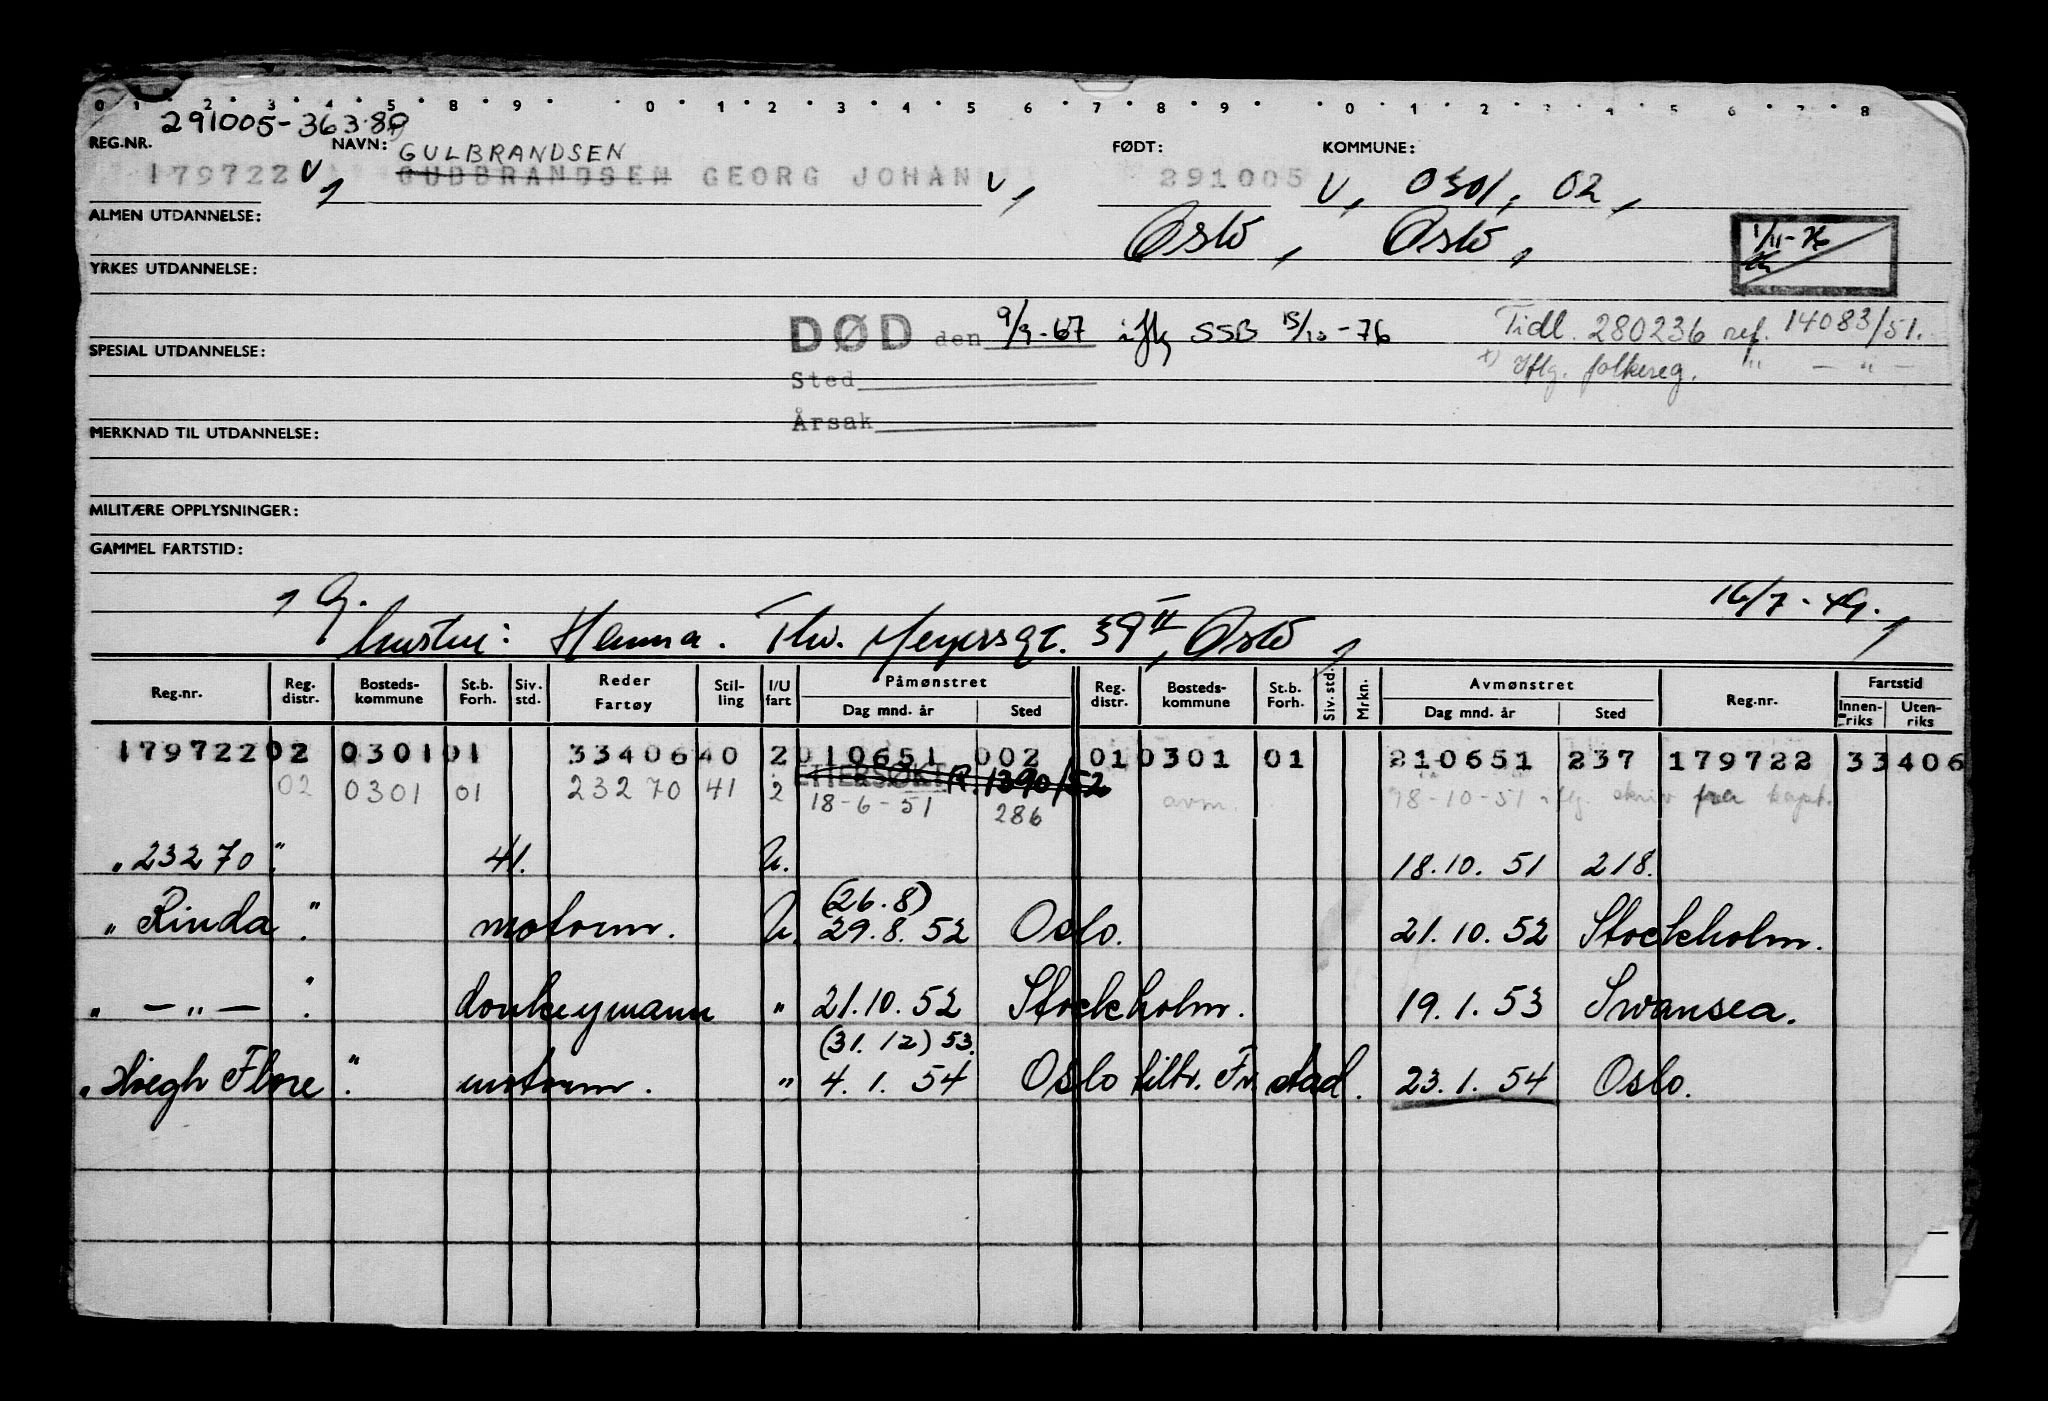 0 1 2 3 4 5 8 9 0 1 2 3 4 5 6 7 8 9 0 1 2 3 4 5 6 7 8
291005-36380
REG.NR. NAVN: GULBRANDSEN FØDT: KOMMUNE:
179722 V, GUDBRANDSEN GEORG JOHAN V, 291005 V, 0301, 02,
ALMEN UTDANNELSE: Oslo, Oslo, 1/11-76
YRKES UTDANNELSE:
DØD den 9/9-67 iflg SSB 15/10-76 Tidl. 280236 ref. 14083/51.
SPESIAL UTDANNELSE: x) Iflg. folkereg. " — " —
Sted
Årsak
MERKNAD TIL UTDANNELSE:
MILITÆRE OPPLYSNINGER:
GAMMEL FARTSTID:
, G. 16/7-49.,
hustru: Hanna. Thv. Meyersgt. 39 II, Oslo,
Reg.nr. Reg. distr. Bosteds-kommune St.b. Forh. Siv. std. Reder Fartøy Stil-ling I/U fart Påmønstret Dag mnd. år Sted Reg. distr. Bosteds-kommune St.b. Forh. Siv. std. Mrkn. Avmønstret Dag mnd. år Sted Reg.nr. Fartstid Innen-riks Uten-riks
179722 02 0301 01 33406 40 2 010651 002 01 0301 01 210651 237 179722 33406
ETTERSØKT R. 1390/52
02 0301 01 23270 41 2 18-6-51 286 avm. 18-10-51 iflg. skriv fra kapt.
"23270". 41. U. 18.10.51 218.
(26.8)
" Rinda ". motorm. U. 29.8.52 Oslo. 21.10.52 Stockholm.
" — " — ". donkeymann " 21.10.52 Stockholm. 19.1.53 Swansea.
(31.12) 53.
" Høegh Flore ". motorm. " 4.1.54 Oslo tiltr. Fr.stad. 23.1.54 Oslo.